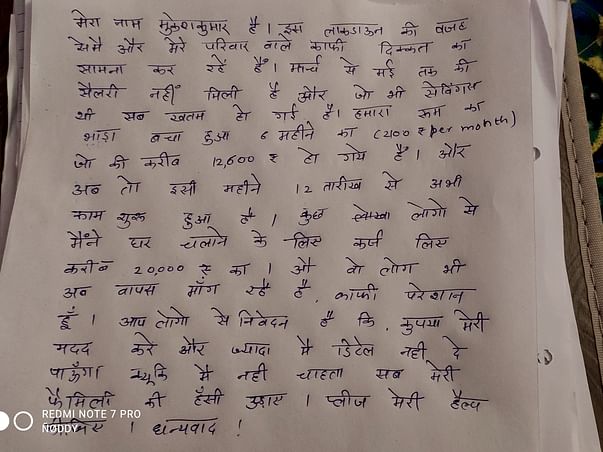 मेरा नाम मुकेशकुमार है। इस लाकडाऊन की वजह
सेमै और मेरे परिवार वाले काफी दिक्कत का
सामना कर रहे हैं। मार्च से मई तक की
सैलरी नहीं मिली है और जो भी सेविंगस
थी सब खतम हो गई है। हमारा रूम का
भाड़ा बचा हुआ 6 महीने का (2100 ₹ per month)
जो की करीब 12,600 ₹ हो गये है। और
अब तो इसी महीने 12 तारीख से अभी
काम शुरू हुआ है। कुछ लोगो से
मैंने घर चलाने के लिए कर्ज लिए
करीब 20,000 ₹ का। औ वो लोग भी
अब वापस माँग रहे है, काफी परेशान
हूँ। आप लोगो से निवेदन है कि, कृपया मेरी
मदद करे और ज्यादा मै डिटेल नही दे
पाऊँगा क्यूकि मै नही चाहता सब मेरी
फैमिली की हँसी उड़ाए। प्लीज मेरी हैल्प
। धन्यवाद !
REDMI NOTE 7 PRO
NODDY